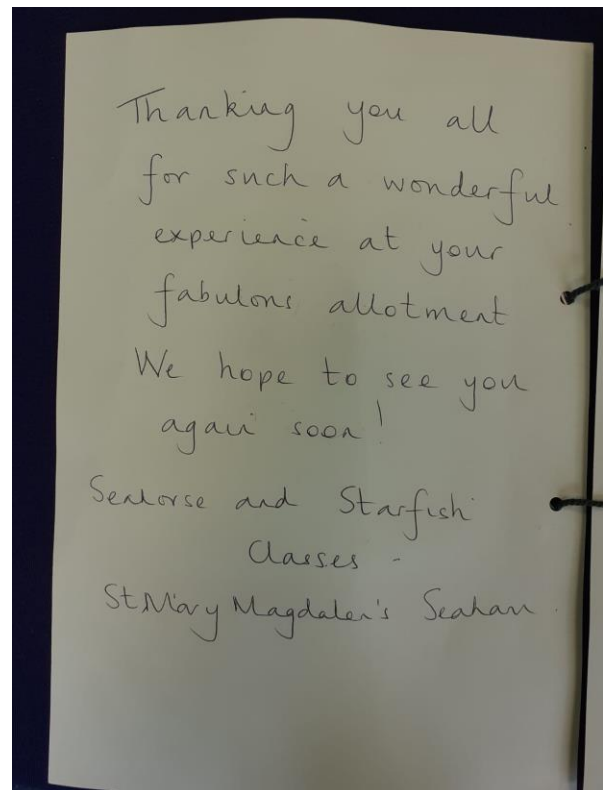 Thanking you all
for such a wonderful
experience at your
fabulous allotment
We hope to see you
again soon!
Seahorse and Starfish
Classes -
St Mary Magdalen's Seaham.